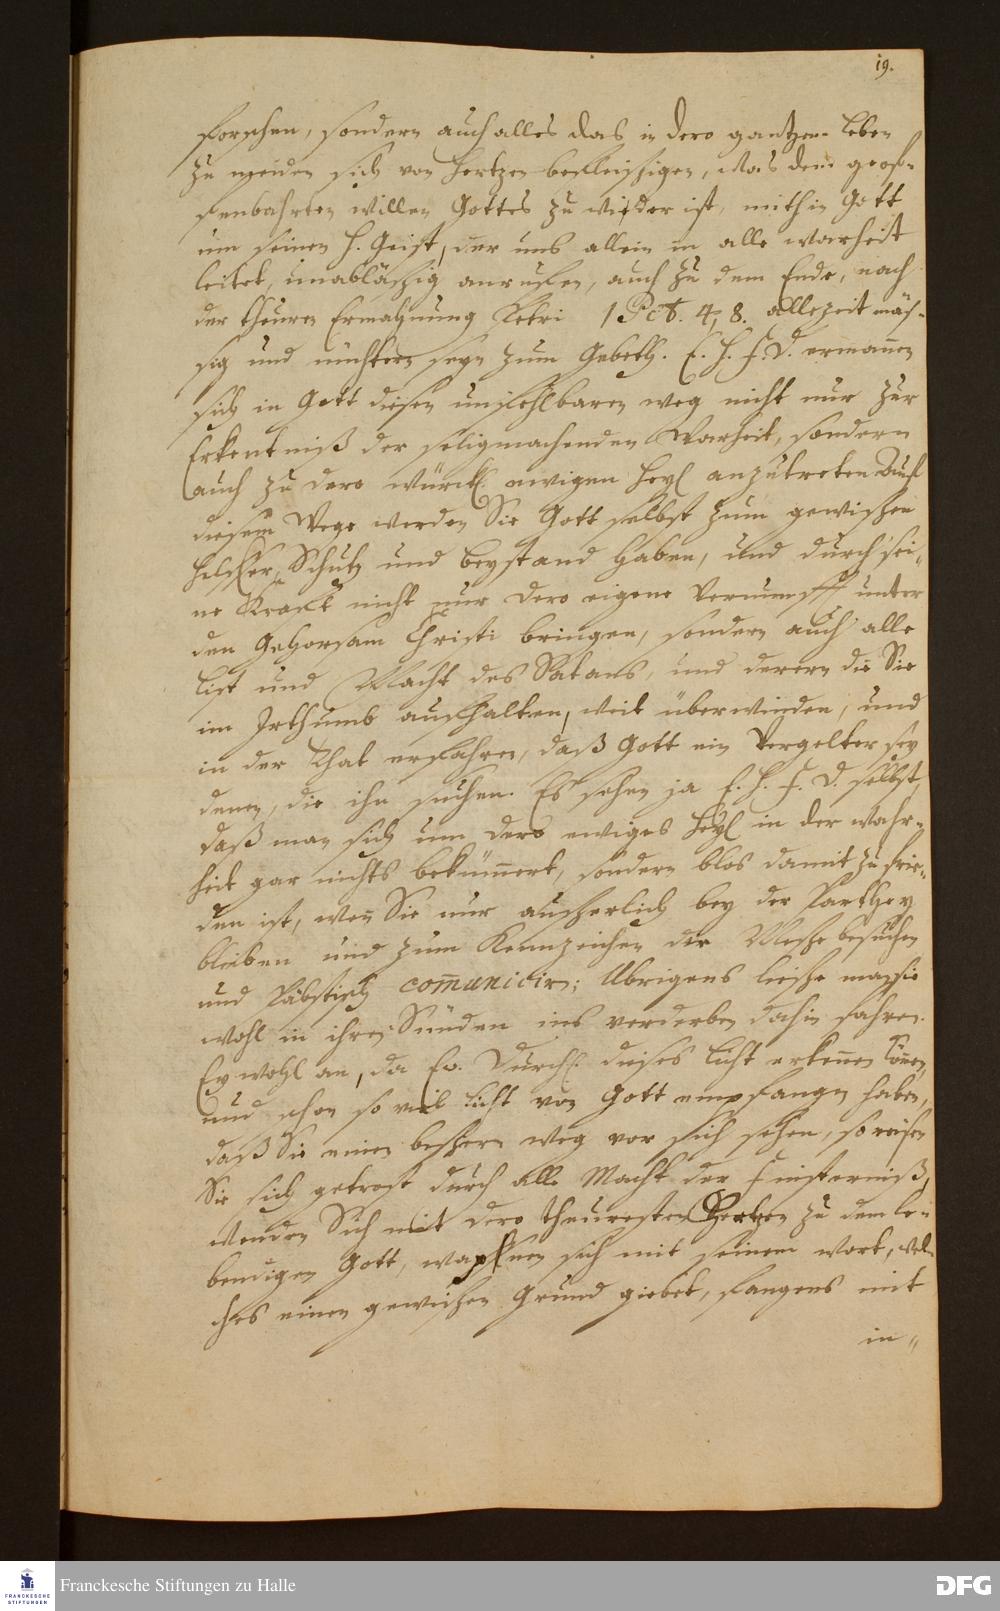 19.
forschen, sondern auch alles das in dero gantzen Leben
zu meiden sich von Hertzen befleissigen, was dem geof-
fenbahrten Willen Gottes zu wieder ist, mithin Gott
um seinen H. Geist, der uns allein in alle Warheit
leitet, unablässig anruffen, auch zu dem Ende, nach
der theuren Ermahnung Petri 1 Pet. 4, 8. allezeit mäs-
sig und nüchtern seyn zum Gebeth. E. H. F. D. ermannen
sich in Gott diesen unfehlbaren Weg nicht nur zur
Erkentniß der seligmachenden Warheit, sondern
auch zu dero würckl. ewigen Heyl anzutreten. Auf
diesem Wege werden Sie Gott selbst zum gewissen
Helffer, Schutz und Beystand haben, und durch sei-
ne Krafft nicht nur dero eigene Vernunfft unter
den Gehorsam Christi bringen, sondern auch alle
List und Macht des Satans, und derern die Sie
im Irthumb aufhalten, weit überwinden, und
in der That erfahren, daß Gott ein Vergelter sey
denen, die ihn suchen. Es sehen ja E. H. F. D. selbst,
daß man sich um dero ewiges Heyl in der Wahr-
heit gar nichts bekümmert, sondern blos damit zu frie-
den ist, wenn Sie nur äusserlich bey der Parthey
bleiben und zum Kennzeichen die Messe besuchen
und Päbstisch communiciren; Ubrigens liesse man sie
wohl in ihren Sünden ins verderben dahin fahren.
Ey wohl an, da Ew. Durchl. dieses Licht erkennen können,
und schon so viel Licht von Gott empfangen haben,
daß Sie einen bessern Weg vor sich sehen, so reissen
Sie sich getrost durch alle Macht der Finsterniß,
wenden Sich mit dero theuresten Hertzen zu dem le-
bendigen Gott, wapfnen sich mit seinem Wort, wel-
ches einen gewissen Grund giebet, fangens mit
in-
Franckesche Stiftungen zu Halle
FRANCKESCHE
STIFTUNGEN
DFG